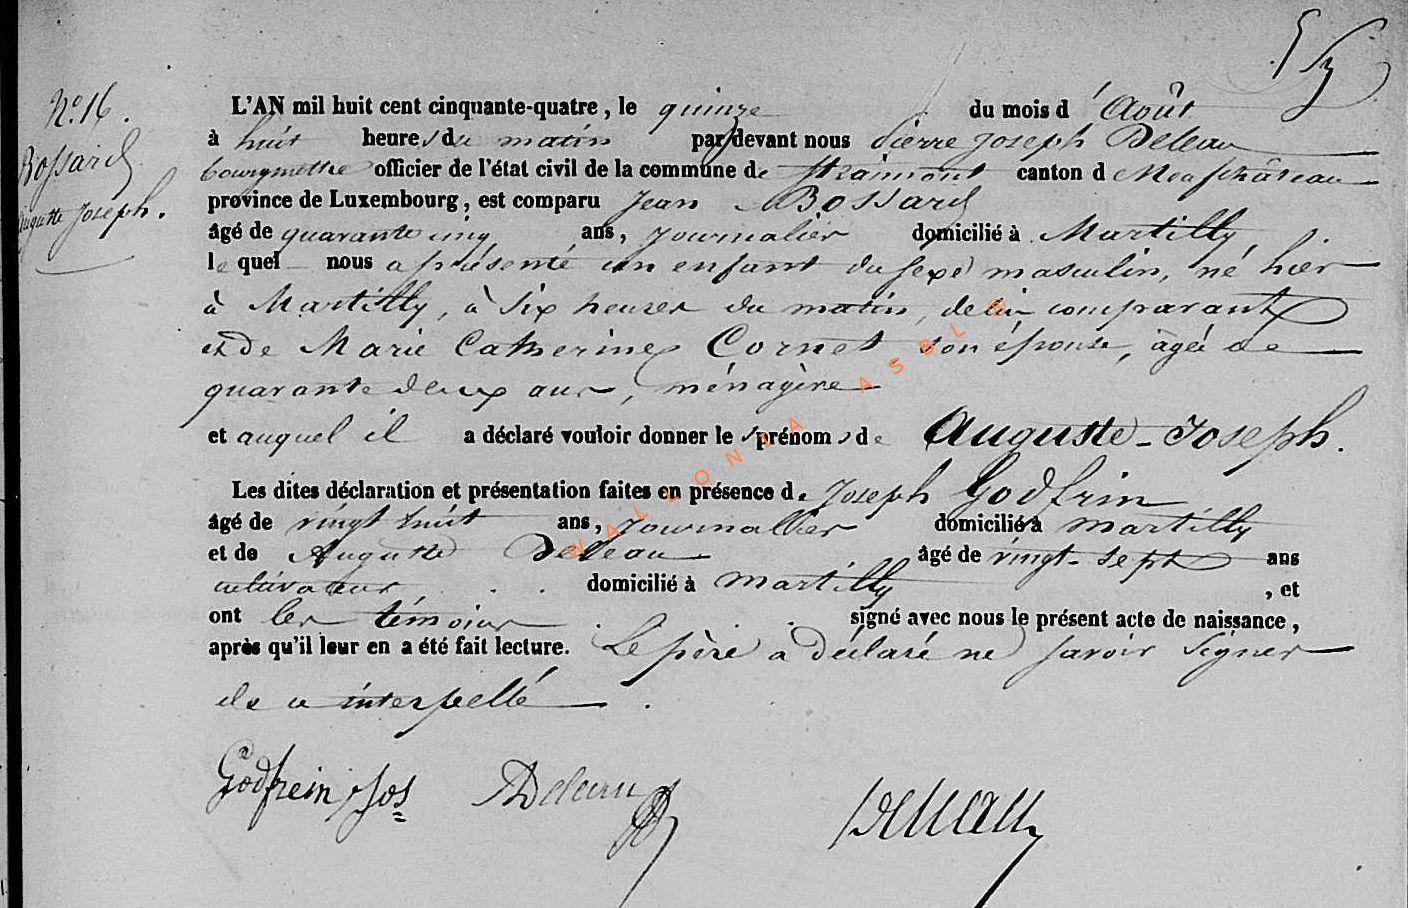 N.º 16.
Bossard
Auguste Joseph.
L'AN mil huit cent cinquante-quatre, le quinze du mois d'Août
à huit heures du matin par devant nous Pierre Joseph Deleau
bourgmettre officier de l'état civil de la commune de Straimont canton d Neufchâteau
province de Luxembourg, est comparu Jean Bossard
âgé de quarante cinq ans, journalier domicilié à Martilly,
lequel nous a présenté un enfant du sexe masculin, né hier
à Martilly, à six heures du matin, de lui comparant
et de Marie Catherine Cornet son épouse, âgée de
quarante deux ans, ménagère
et auquel il a déclaré vouloir donner les prénoms de Auguste-Joseph.
Les dites déclaration et présentation faites en présence de Joseph Godfrin
âgé de vingt huit ans, journallier domicilié à Martilly
et de Auguste Deleau âgé de vingt-sept ans
cultivateur, domicilié à Martilly, et
ont les témoins signé avec nous le présent acte de naissance,
après qu'il leur en a été fait lecture. Le père a déclaré ne savoir signer
de ce interpellé.
Godfrein Jos
ADeleau
Deleau
WALLONIA ASBL ©